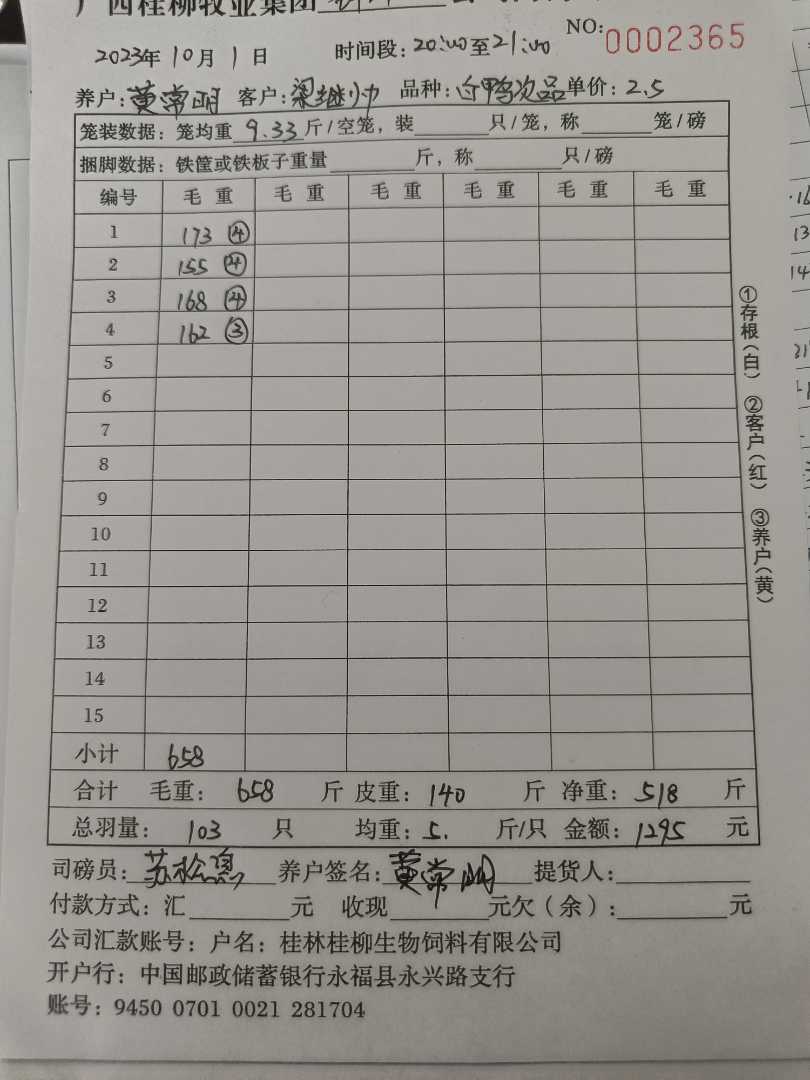 广西桂柳牧业集团
NO: 0002365
2023年10月1日 时间段: 20:00至21:00
养户: 黄常明 客户: 梁继帅 品种: 白鸭次品 单价: 2.5
笼装数据: 笼均重 9.33 斤/空笼, 装______只/笼, 称______笼/磅
捆脚数据: 铁筐或铁板子重量______斤, 称______只/磅
编号 毛重 毛重 毛重 毛重 毛重 毛重
1 173 ④
2 155 ④
3 168 ④
4 162 ③
5
6
7
8
9
10
11
12
13
14
15
小计 658
合计 毛重: 658 斤 皮重: 140 斤 净重: 518 斤
总羽量: 103 只 均重: 5. 斤/只 金额: 1295 元
司磅员: 苏松 养户签名: 黄常明 提货人:______
付款方式: 汇______元 收现______元欠(余):______元
公司汇款账号: 户名: 桂林桂柳生物饲料有限公司
开户行: 中国邮政储蓄银行永福县永兴路支行
账号: 9450 0701 0021 281704
①存根(白) ②客户(红) ③养户(黄)